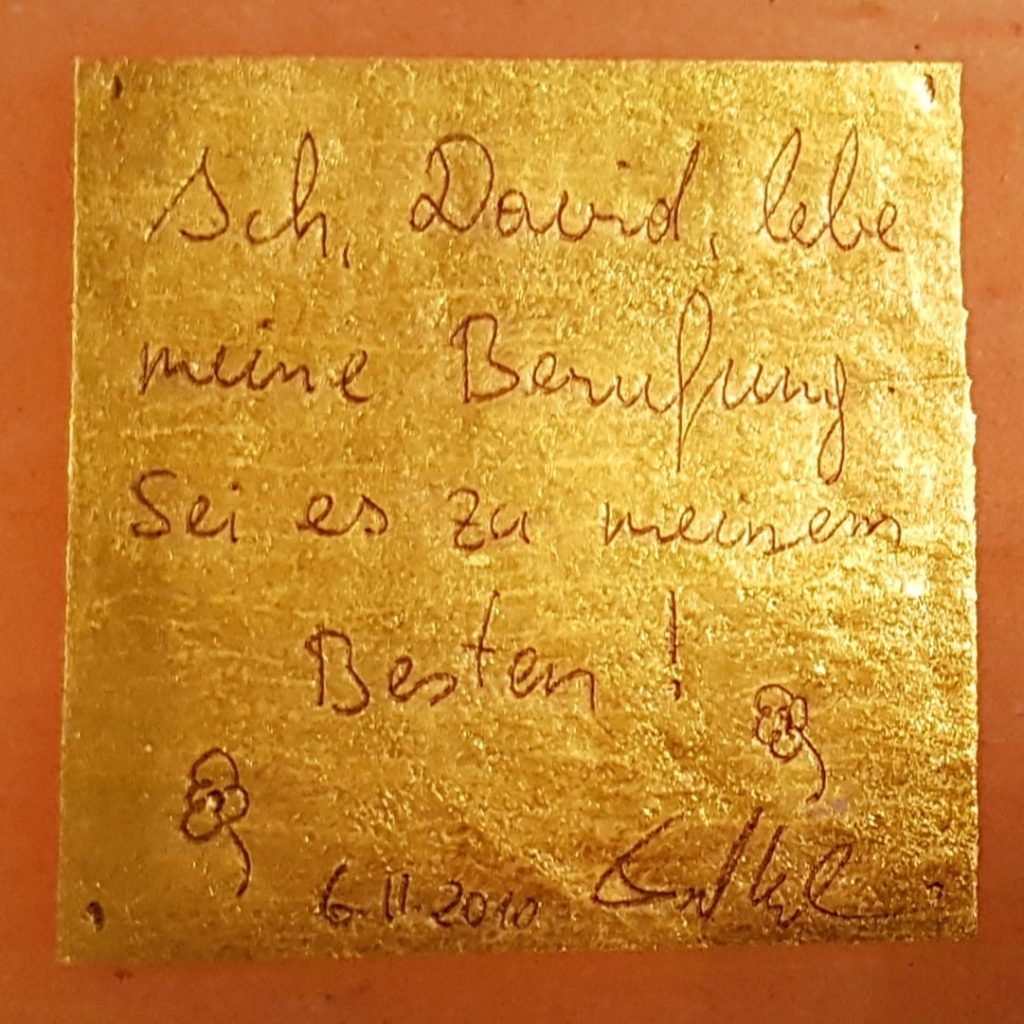 Ich, David, lebe
meine Berufung.
Sei es zu meinem
Besten!
6.11.2010